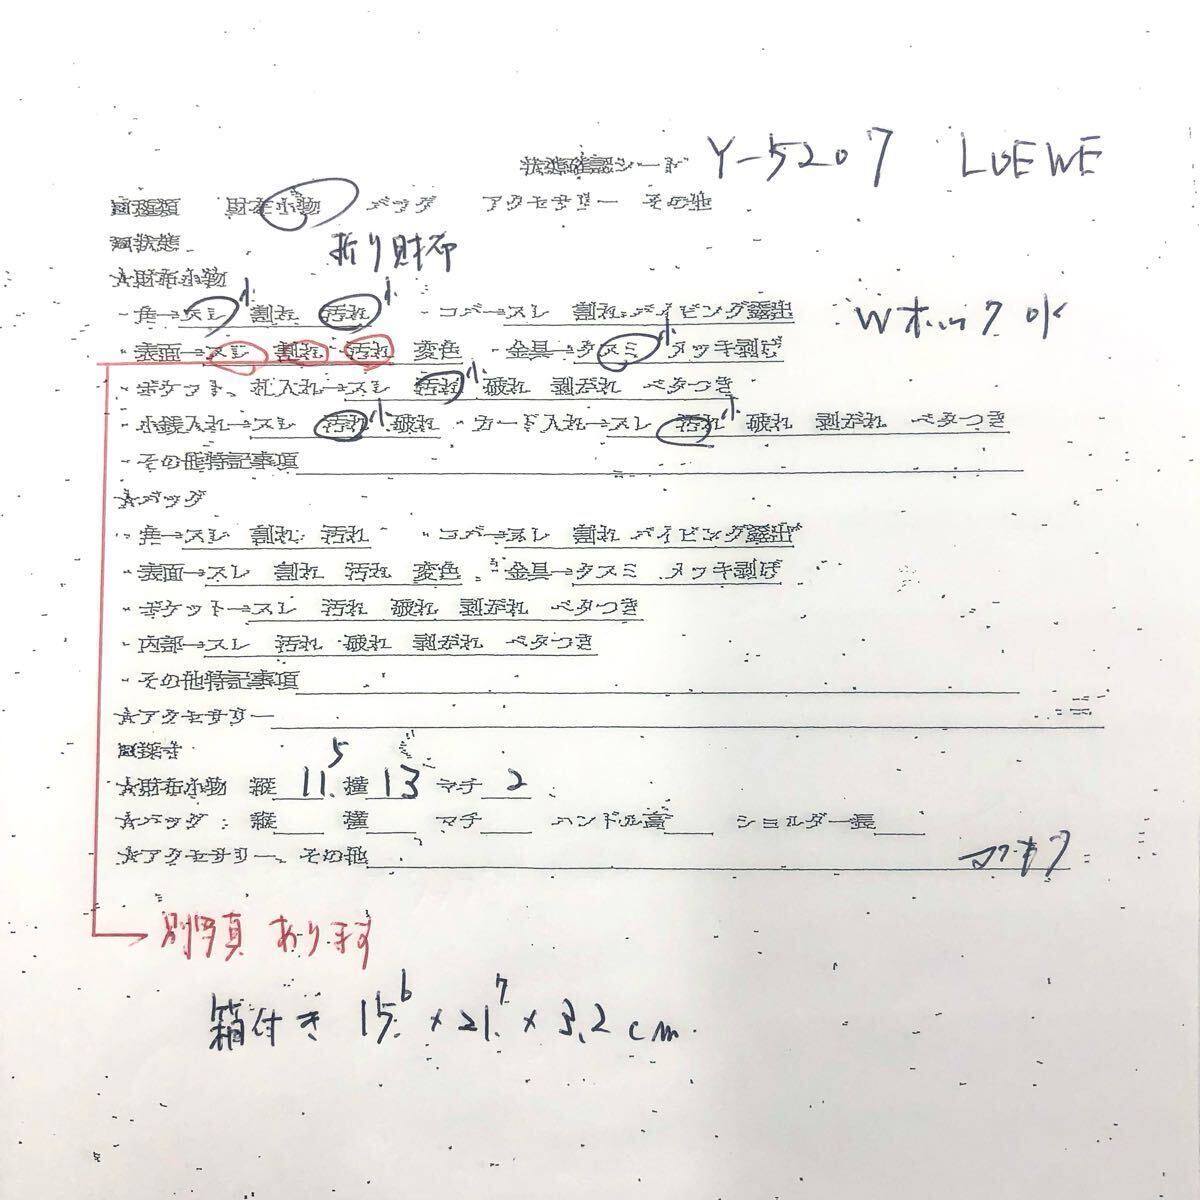 状態確認シート Y-5207 LOEWE
■種類 財布小物 バッグ アクセサリー その他
■状態 折り財布
★財布小物
・角→スレ小 割れ 汚れ小 ・コバ→スレ 割れ パイピング露出 Wホック OK
・表面→スレ 割れ 汚れ 変色 ・金具→クスミ小 メッキ剥げ
・ポケット、札入れ→スレ 汚れ小 破れ 剥がれ ベタつき
・小銭入れ→スレ 汚れ小 破れ ・カード入れ→スレ 汚れ小 破れ 剥がれ ベタつき
・その他特記事項
★バッグ
・角→スレ 割れ 汚れ ・コバ→スレ 割れ パイピング露出
・表面→スレ 割れ 汚れ 変色 ・金具→クスミ メッキ剥げ
・ポケット→スレ 汚れ 破れ 剥がれ ベタつき
・内部→スレ 汚れ 破れ 剥がれ ベタつき
・その他特記事項
★アクセサリー
■採寸
★財布小物 縦 11.5 横 13 マチ 2
★バッグ: 縦 横 マチ ハンドル高 ショルダー長
★アクセサリー、その他
別写真 あります
箱付き 15.6 × 21.7 × 3.2 cm